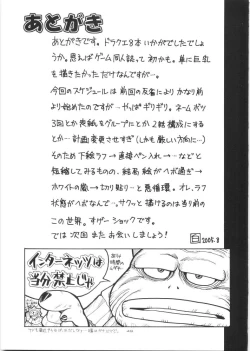 あとがき
あとがきです。ドラクエ8本いかがでしたでしょ
うか。思えばゲーム同人誌って初かも。単に巨乳
を描きたかっただけなんですが…。
今回のスケジュールは前回の反省によりかなり前
より始めたのですが…やっぱギリギリ。ネームボツ
3回とか表紙をグループにとか2話構成にする
とか…計画変更させすぎ(しかも厳しい方向に…)
そのため下絵ラフ→直接ペン入れ→…などと
短縮してみるものの、結局絵がヘボ過ぎ→
ホワイトの嵐→切り貼り…と悪循環。オレ、ラフ
状態がヘボなんで…。サクッと描けるのは当り前の
この世界。すげーショックです。
では次回またお会いしましょう!
2005.8
インターネッツは
当分禁止じゃ